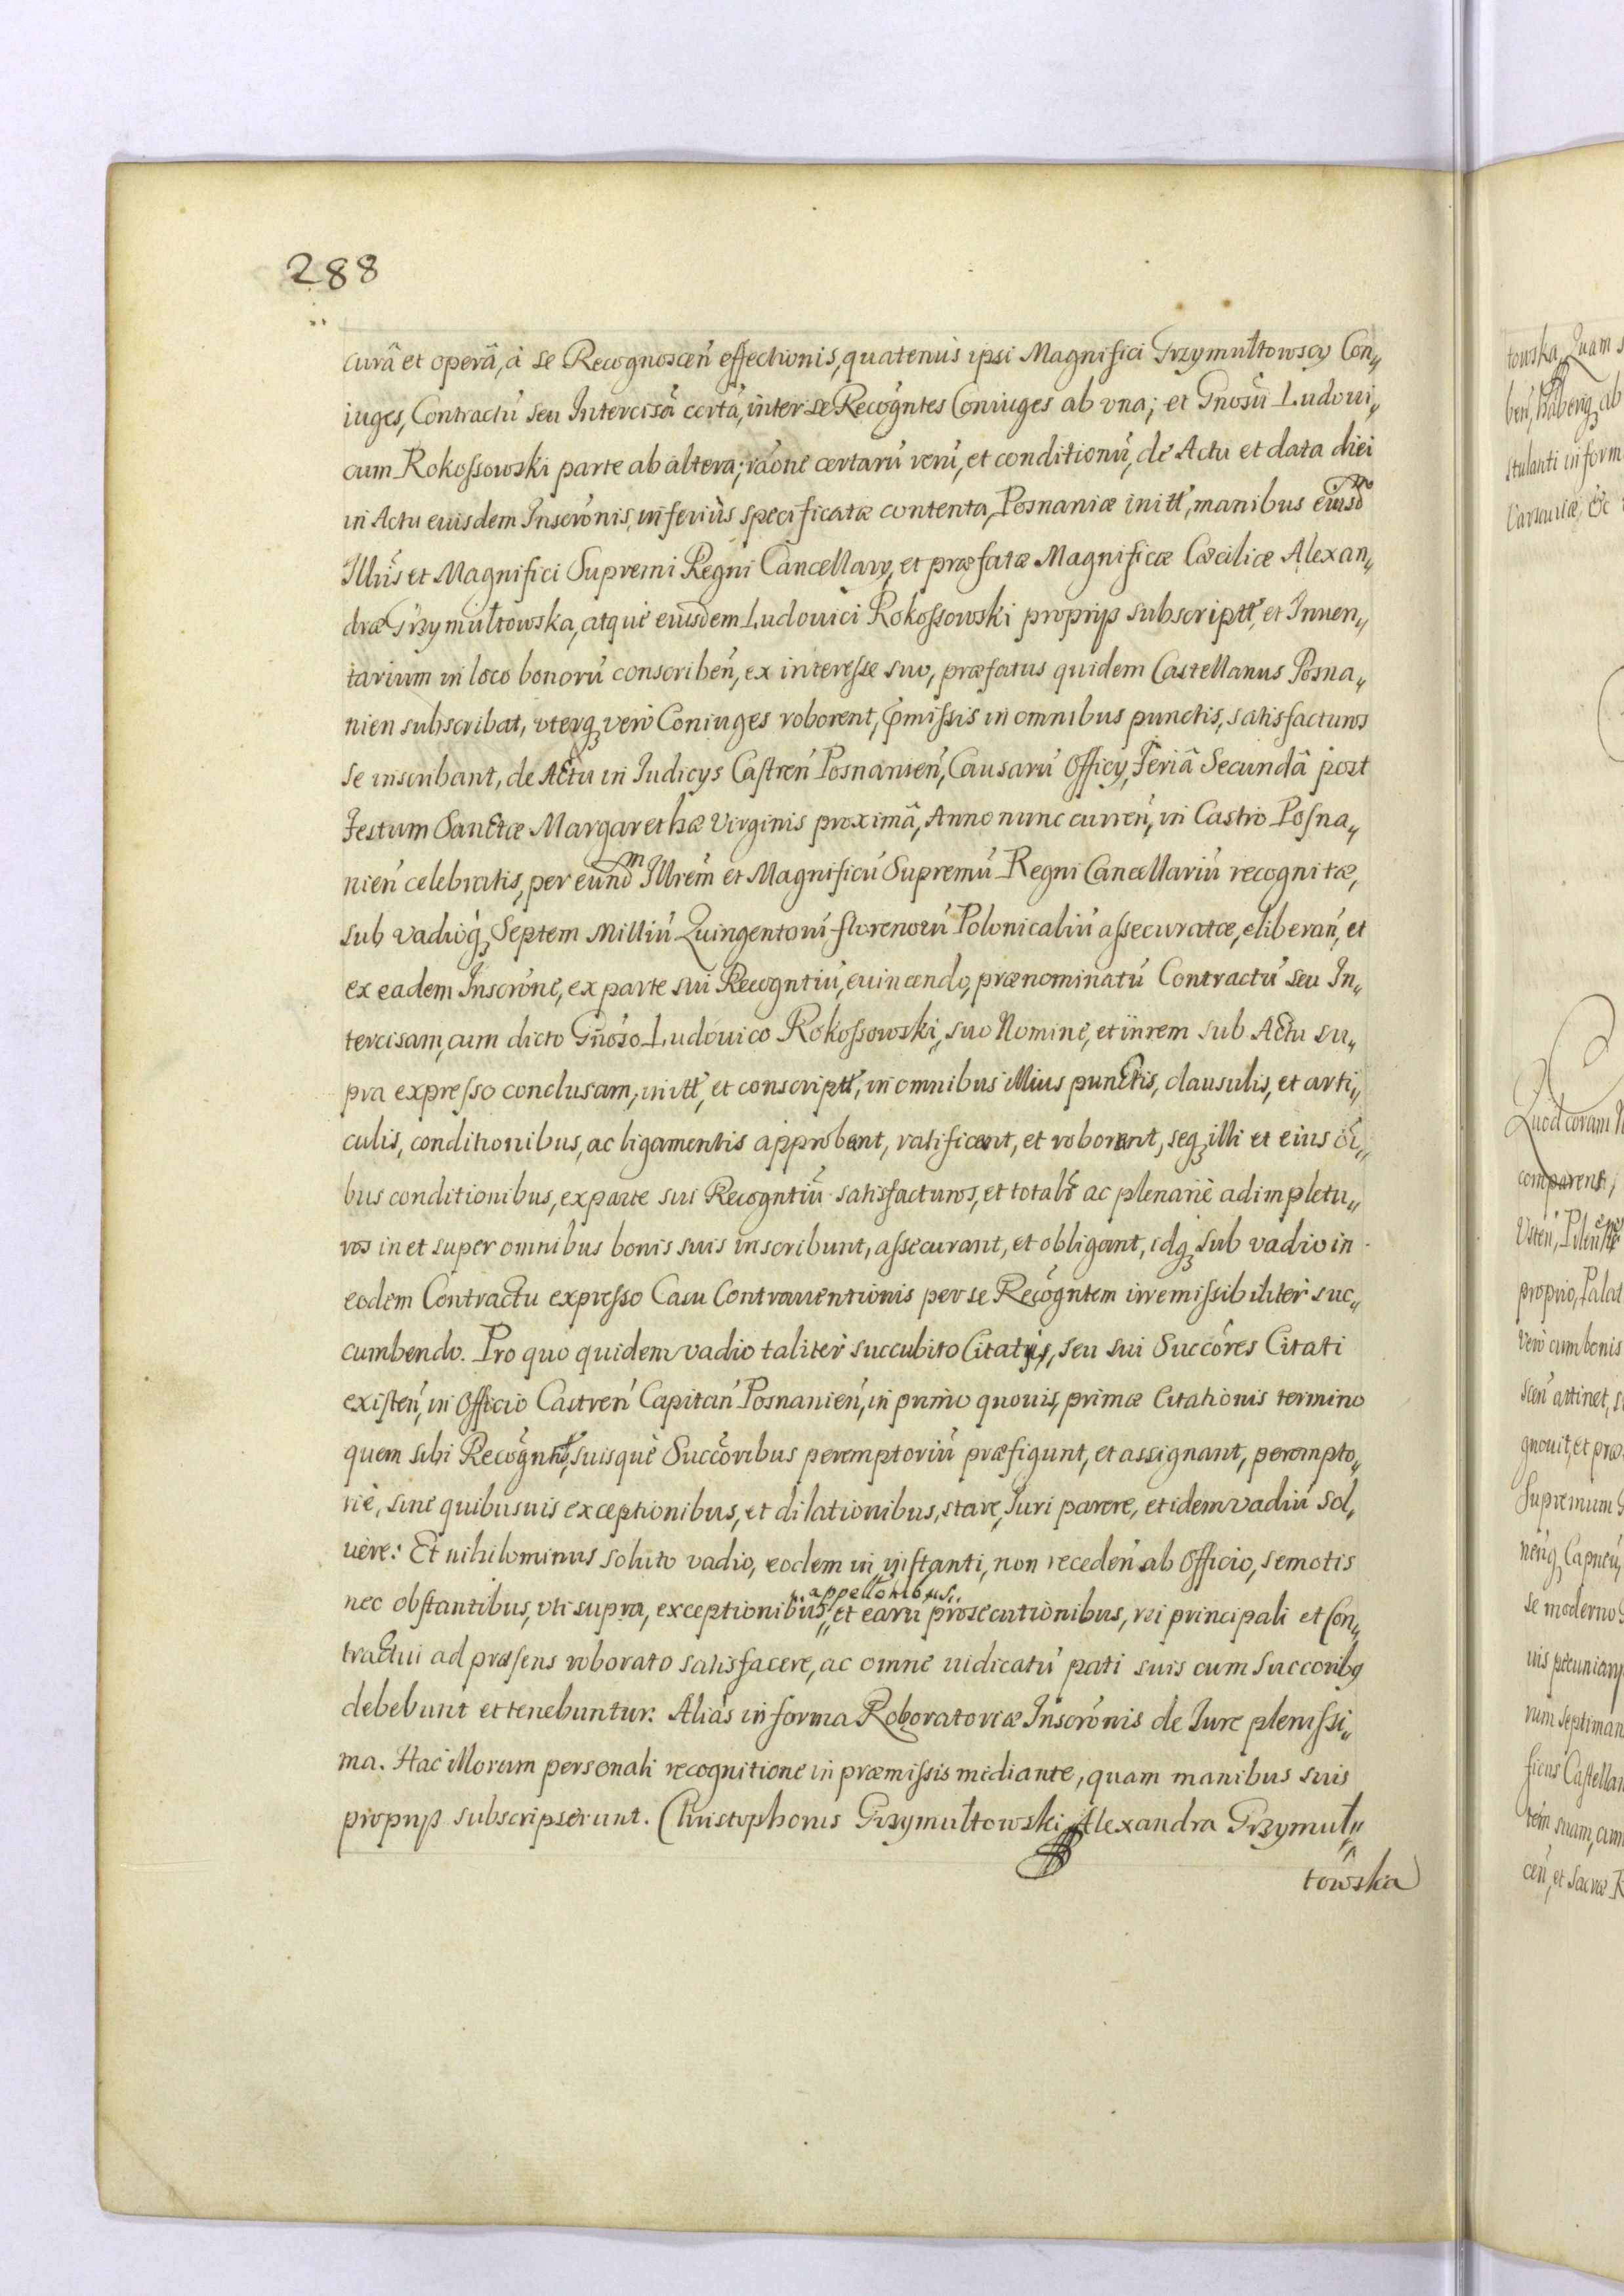 288
curâ et operâ, à se Recognoscen̄ effectionis, quatenus ipsi Magnifici Grzymułtowscy Con„
iuges, Contractū seu Intercisā certā, inter se Recogn̄tes Coniuges ab vna; et Gnosū Ludoui„
cum Rokoſsowski parte ab altera; rāone certarū rerū, et conditionū, de Actu et data diei
in Actu euisdem Inscrōnis, inferiùs specificatæ contenta, Posnaniæ initt, manibus eiusdm
Illris et Magnifici Supremi Regni Cancellarÿ, et præfatæ Magnificæ Cæciliæ Alexan„
dræ Grzymułtowska, atque eiusdem Ludouici Rokoſsowski proprijs subscriptt, et Inuen„
tarium in loco bonorū conscriben̄, ex intereſse suo, præfatus quidem Castellanus Posna„
nien subscribat, vterq₃ verò Coniuges roborent, p̄miſsis in omnibus punctis, satisfacturos
se inscribant, de Actu in Iudicÿs Caſtren̄ Posnanien̄, Causarū Officÿ, Feriâ Secundâ post
Festum Sanctæ Margarethæ Virginis proximâ, Anno nunc curren̄, in Castro Poſna„
nien̄ celebratis, per eundm Illrem et Magnificū Supremū Regni Cancellariū recognitæ,
sub vadioq₃ Septem Milliū Quingentorū florenorū Polonicaliū aſsecuratæ, eliberan̄, et
ex eadem Inscrōne, ex parte sui Recogn̄tiū, euincendo, prænominatū Contractū seu In„
tercisam, cum dicto Gn̄oso Ludouico Rokoſsowski, suo Nomine, et in rem sub Actu su„
pra expreſso conclusam, initt, et conscriptt, in omnibus illius punctis, clausulis, et arti„
culis, conditionibus, ac ligamentis approbant, ratificant, et roborant, seq₃ illi et eius ōi„
bus conditionibus, ex parte sui Recogn̄tiū satisfacturos, et totalr ac plenariè adimpletu„
ros in et super omnibus bonis suis inscribunt, aſsecurant, et obligant, idq₃ sub vadio in
eodem Contractu expreſso Casu Contrauentionis per se Recogn̄tem irremiſsibiliter suc„
cumbendo. Pro quo quidem vadio taliter succubito Citatus, seu sui Succōres Citati
exiſten̄, in Officio Castren̄ Capitan̄ Posnanien̄, in primo quouis, primæ Citationis termino
quem sibi Recogn̄t, suisque Succōribus peremptoriū præfigunt, et assignant, perempto„
riè, sine quibusuis exceptionibus, et dilationibus, stare, Iuri parere, et idem vadiū sol„
uere: Et nihilominus soluto vadio, eodem in inſtanti, non receden̄ ab Officio, semotis
„appellonibus„
nec obſtantibus, vti supra, exceptionibus,„ et earū prosecutionibus, rei principali et Con„
tractui ad præsens roborato satisfacere, ac omne iudicatū pati suis cum Succoribq
debebunt et tenebuntur: Aliàs in forma Roboratoriæ Inscrōnis de Iure pleniſsi„
ma. Hac illorum personali recognitione in præmiſsis mediante, quam manibus suis
proprijs subscripserunt. Christophorus Grzymułtowski Alexandra Grzymuł„
towska